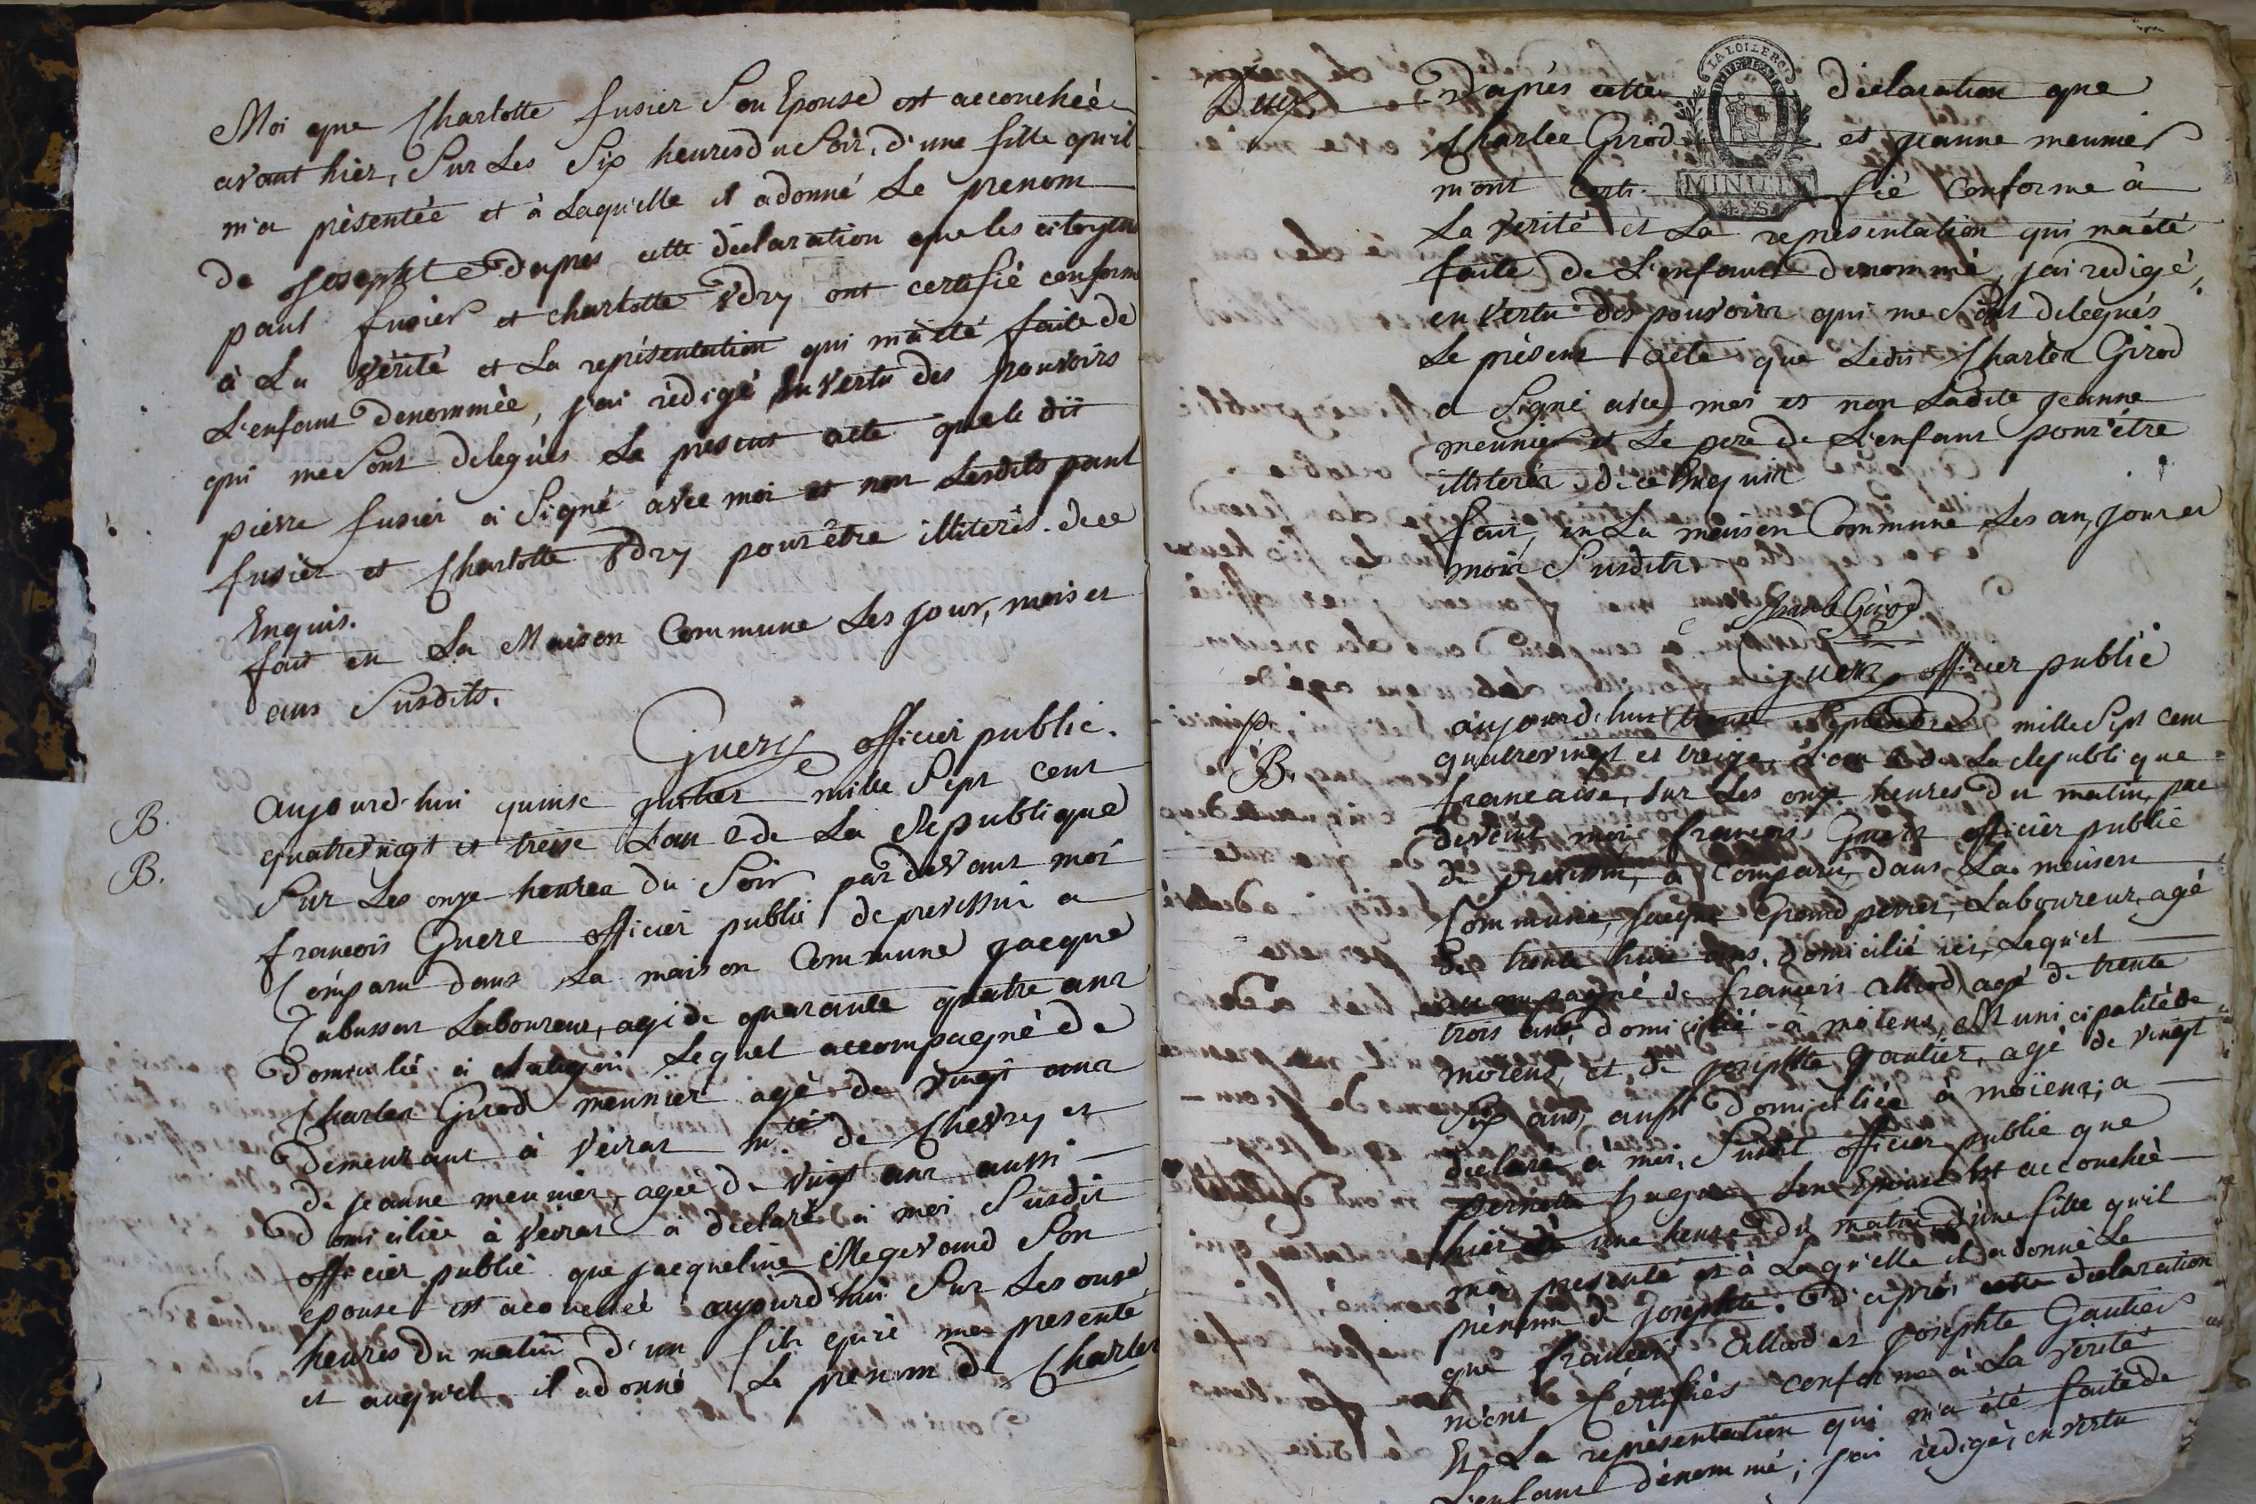 Moi que Charlotte fusier Son Epouse est accouchée
avant hier, Sur Les Six heures du Soir, d'une fille qu'il
m'a présentée et à Laquelle il a donné Le prenom
de Josephte D'apres cette déclaration que les citoyens
paul fusier et charlotte Vdry ont certifié conforme
à La vérité et La représentation qui m'a été faite de
L'enfant denommée, j'ai rédigé En vertu des pouvoirs
qui me Sont delegués Le present acte que le dit
pierre fusier a Signé avec moi et non Lesdits paul
fusier et Charlotte Vdry pour être illiterés. de ce
Enquis.
fait en La Maison Commune Les jour, mois et
ans Susdits.
Guery officier public.
B.
B.
aujourd'hui quinse juillet mille Sept cent
quatrevingt et treise L'an 2 de La Republique
Sur Les onze heures du Soir par devant moi
francois Guere officier public de prevessin a
Comparu dans La maison Commune jacque
Tabussot Laboureur, agé de quarante quatre ans
Domicilié à Lequel accompagné de
Charles Girod meunier agé de Vingt ans
demeurant à Veiras m.té de Chevry et
de jeanne meunier, agée de Vingt ans aussi
Domiciliée à Veiras a declaré à moi Susdit
officier public que jacqueline Megevand Son
epouse est accouchée aujourd'hui Sur Les onze
heures du matin d'un fils qu'il m'a presenté
et auquel il a donné Le prenom de Charles
Deux
LA LOI LE ROI
MINUTE
4. S.
D'aprés cette déclaration que
Charles Girod et jeanne meunier
m'ont certifié conforme à
La verité et La representation qui m'a été
faite de L'enfant denommé, j'ai redigé,
en vertu des pouvoirs qui me Sont delegués
Le présent acte que Ledit Charles Girod
a Signé avec moi et non Ladite jeanne
meunier et Le pere de L'enfant pour être
illiterés. de ce Enquis
fait, en La maison Commune Les an, jour et
mois Susdits.
Charle Girod
Guery officier public
p.
B.
aujourd'hui trente Septembre mille Sept cent
quatrevingt et treize, L'an 2 de La Republique
francaise, Sur Les onze heures du matin, par
devant moi francois Guery officier public
de prevessin, a Comparu, dans La maison
Commune, jacque Grandperret, Laboureur, agé
de trente huit ans, domicilié ici, Lequel
accompagné de francois alliod agé de trente
trois ans domicilié à moëns, Municipalité de
moëns, et de josephte Gautier, agé de vingt
Six ans, aussi domiciliée à moiens, a
declaré à moi, Susdit officier public que
pernette hugue Son Epouse Est accouchée
hier à une heure du matin d'une fille qu'il
m'a presenté et à Laqu'elle il a donné Le
prénom de josephte. D'après cette declaration
que francois Alliod et josephte Gautier
m'ont Certifiés conforme à La verité
Et La représentation qui m'a été faite de
L'enfant dénommé, j'ai redigé, en vertu